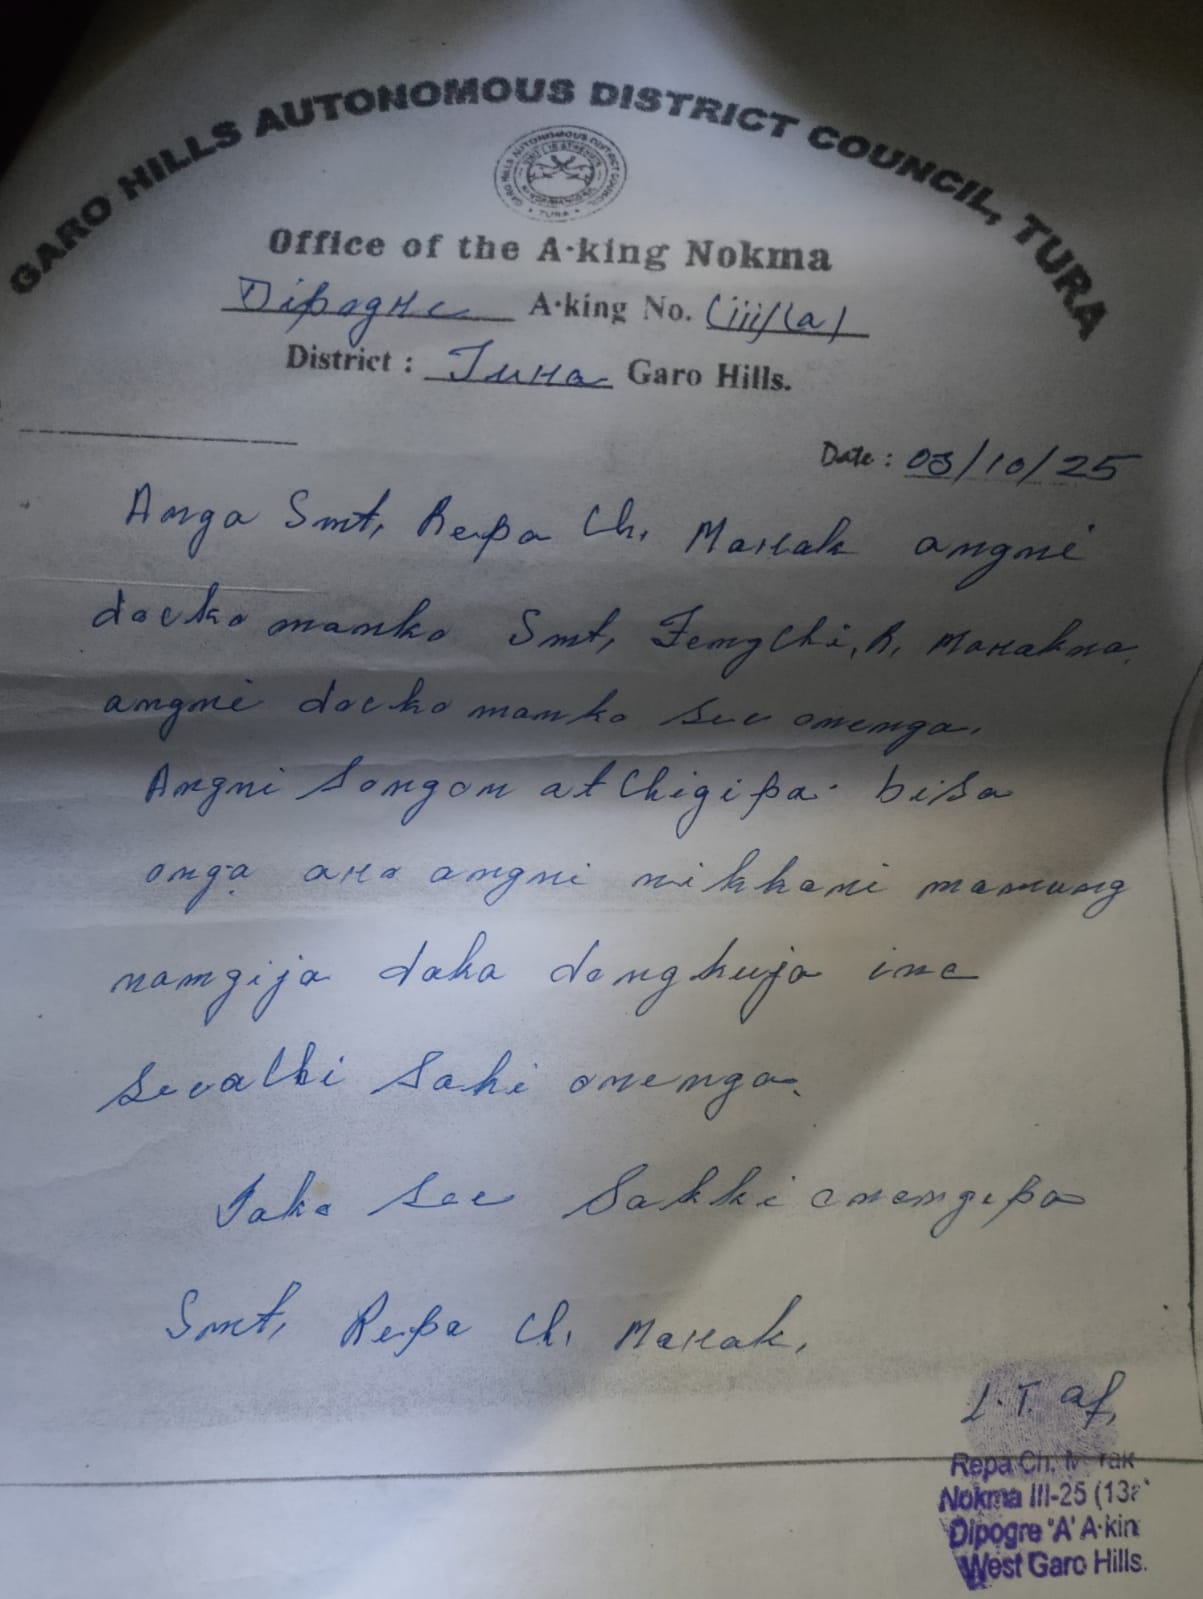 GARO HILLS AUTONOMOUS DISTRICT COUNCIL, TURA
Office of the A·king Nokma
Dipogre A·king No. (iii/(a)
District : Tura Garo Hills.
Date : 03/10/25
Anga Smt, Repa Ch. Marak angni
manko Smt, Tengchi, R, Marakna,
angni manko see onenga.
Angni Songon atchigipa bisa
onga aro angni nikkani mamung
namgija daka dongkuja ine
sevachi saki onenga.
Iako see Sakki onengipa
Smt, Repa Ch. Marak,
L.T. of,
Repa Ch. M rak
Nokma III-25 (13a
Dipogre 'A' A·kin
West Garo Hills.